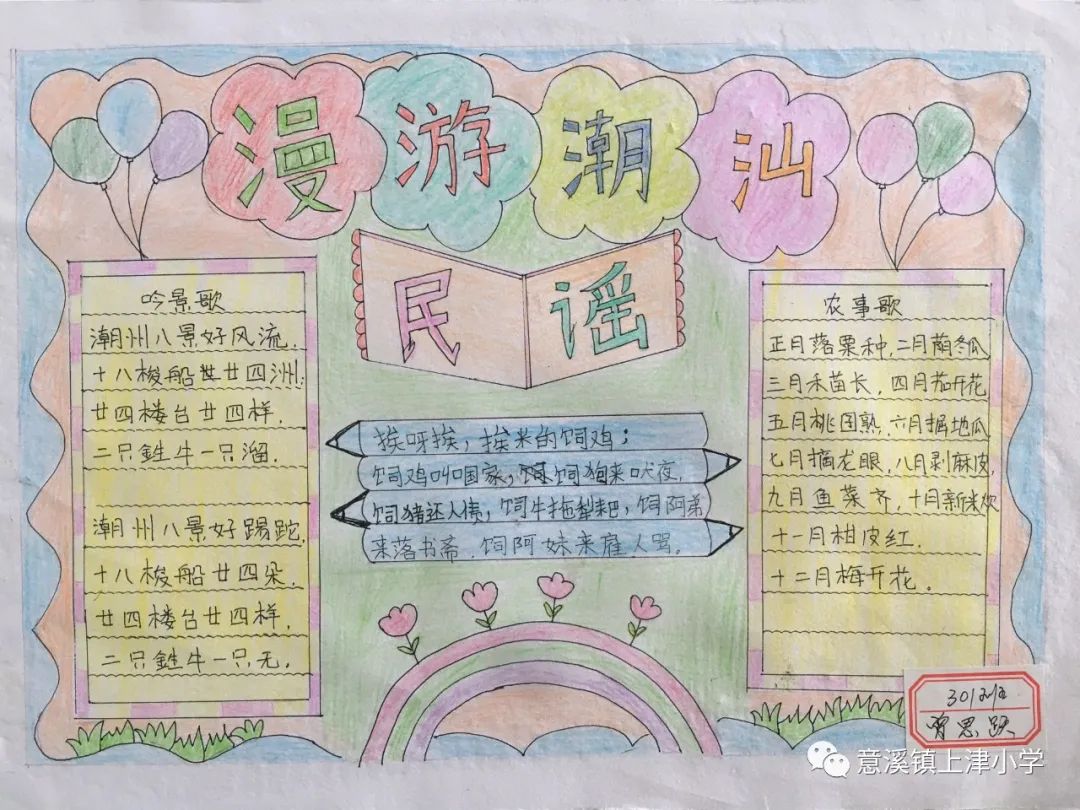 漫游潮汕
民谣
吟景歌
潮州八景好风流,
十八梭船廿四洲,
廿四楼台廿四样,
二只鉎牛一只溜.
潮州八景好踢跎,
十八梭船廿四朵,
廿四楼台廿四样,
二只鉎牛一只无.
挨呀挨,挨米的饲鸡;
饲鸡叫国家,饲狗来吠夜,
饲猪还人债,饲牛拖犁耙,饲阿弟
来落书斋,饲阿妹来雇人骂.
农事歌
正月落粟种,二月葫冬瓜
三月禾苗长,四月茄开花
五月桃园熟,六月掘地瓜
七月摘龙眼,八月剥麻皮,
九月鱼菜齐,十月新米炊
十一月柑皮红.
十二月梅开花.
301班
思跃
意溪镇上津小学